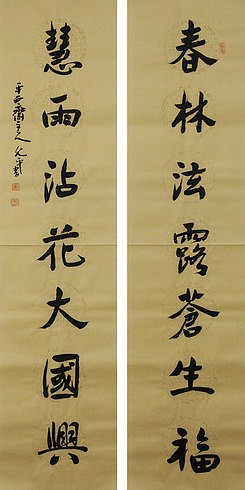 春林泫露蒼生福
慧雨沾花大國興